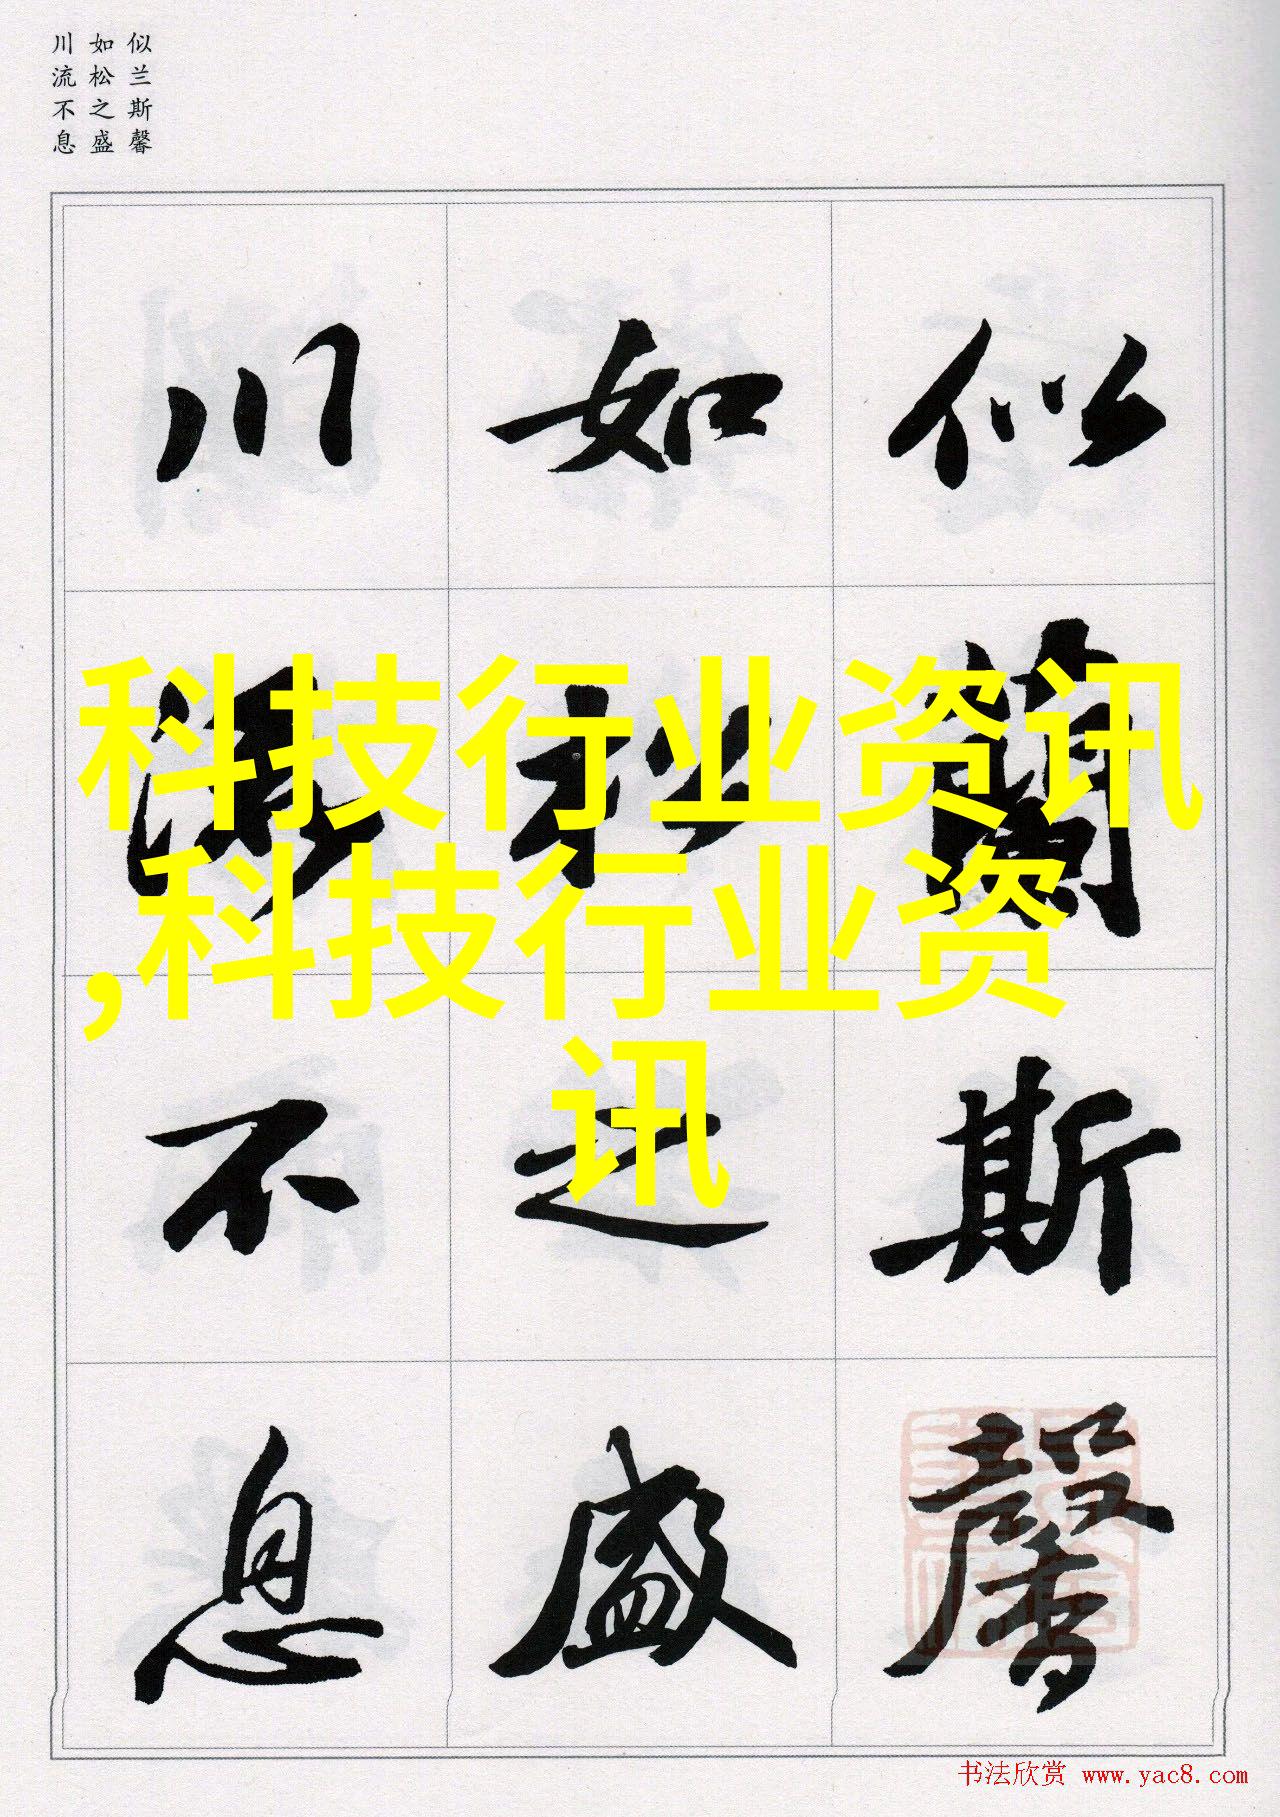 似兰斯馨
如松之盛
川流不息
似蘭斯馨
如松之盛
川流不息
科技行业资讯
,科技行业资
讯
书法欣赏 www.yac8.com